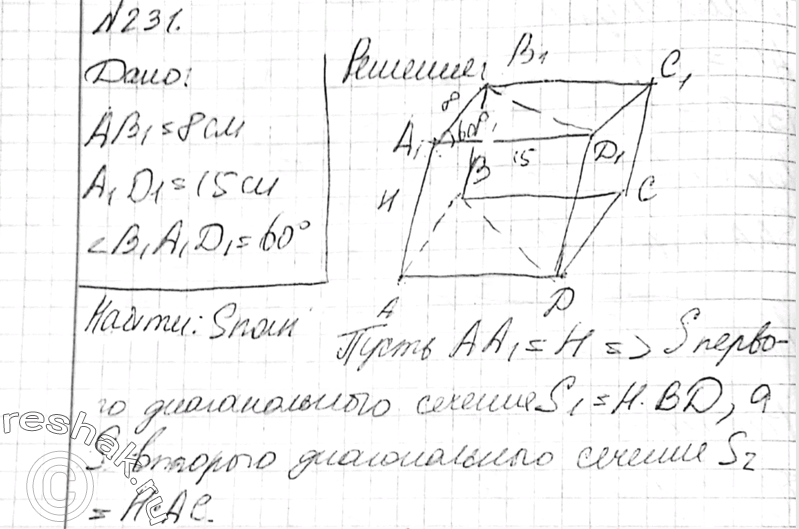 №231.
Дано:
AB₁=8см
A₁D₁=15см
∠B₁A₁D₁=60°
Найти: Sполн
Решение:
B₁
C₁
8
A₁
60°
15
D₁
B
H
C
A
D
Пусть AA₁=H => S перво-
го диагонального сечение S₁=H·BD, а
S второго диагонального сечение S₂
=H·AC.
© reshak.ru